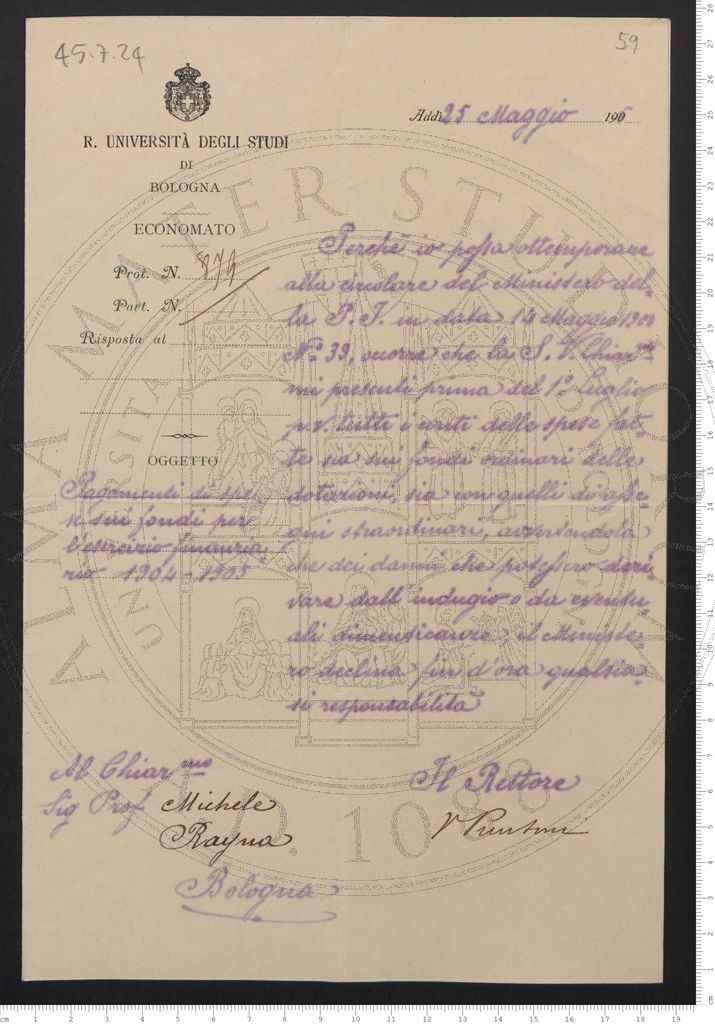 45.7.24
59
R. UNIVERSITÀ DEGLI STUDI
DI
BOLOGNA
ECONOMATO
Prot. N. 879
Part. N.
Risposta al
OGGETTO
Pagamenti di spe-
se sui fondi per
l'esercizio finanzia-
rio 1904-1905
Addì 25 Maggio 1905
Perchè io possa ottemperare
alla circolare del Ministero del-
la P. I. in data 14 Maggio 1905
N.º 39, occorre che la S. V. Chiar.ma
mi presenti prima del 1º Luglio
p. v. tutti i conti delle spese fat-
te sia sui fondi ordinari delle
dotazioni, sia con quelli di asse-
gni straordinari, avvertendola
che dei danni che potessero deri-
vare dall'indugio o da eventu-
ali dimenticanze, il Ministe-
ro declina fin d'ora qualsia-
si responsabilità
Il Rettore
V Puntoni
Al Chiar.mo
Sig Prof. Michele
Rajna
Bologna
ALMA MATER STUDIORUM
A.D. 1088